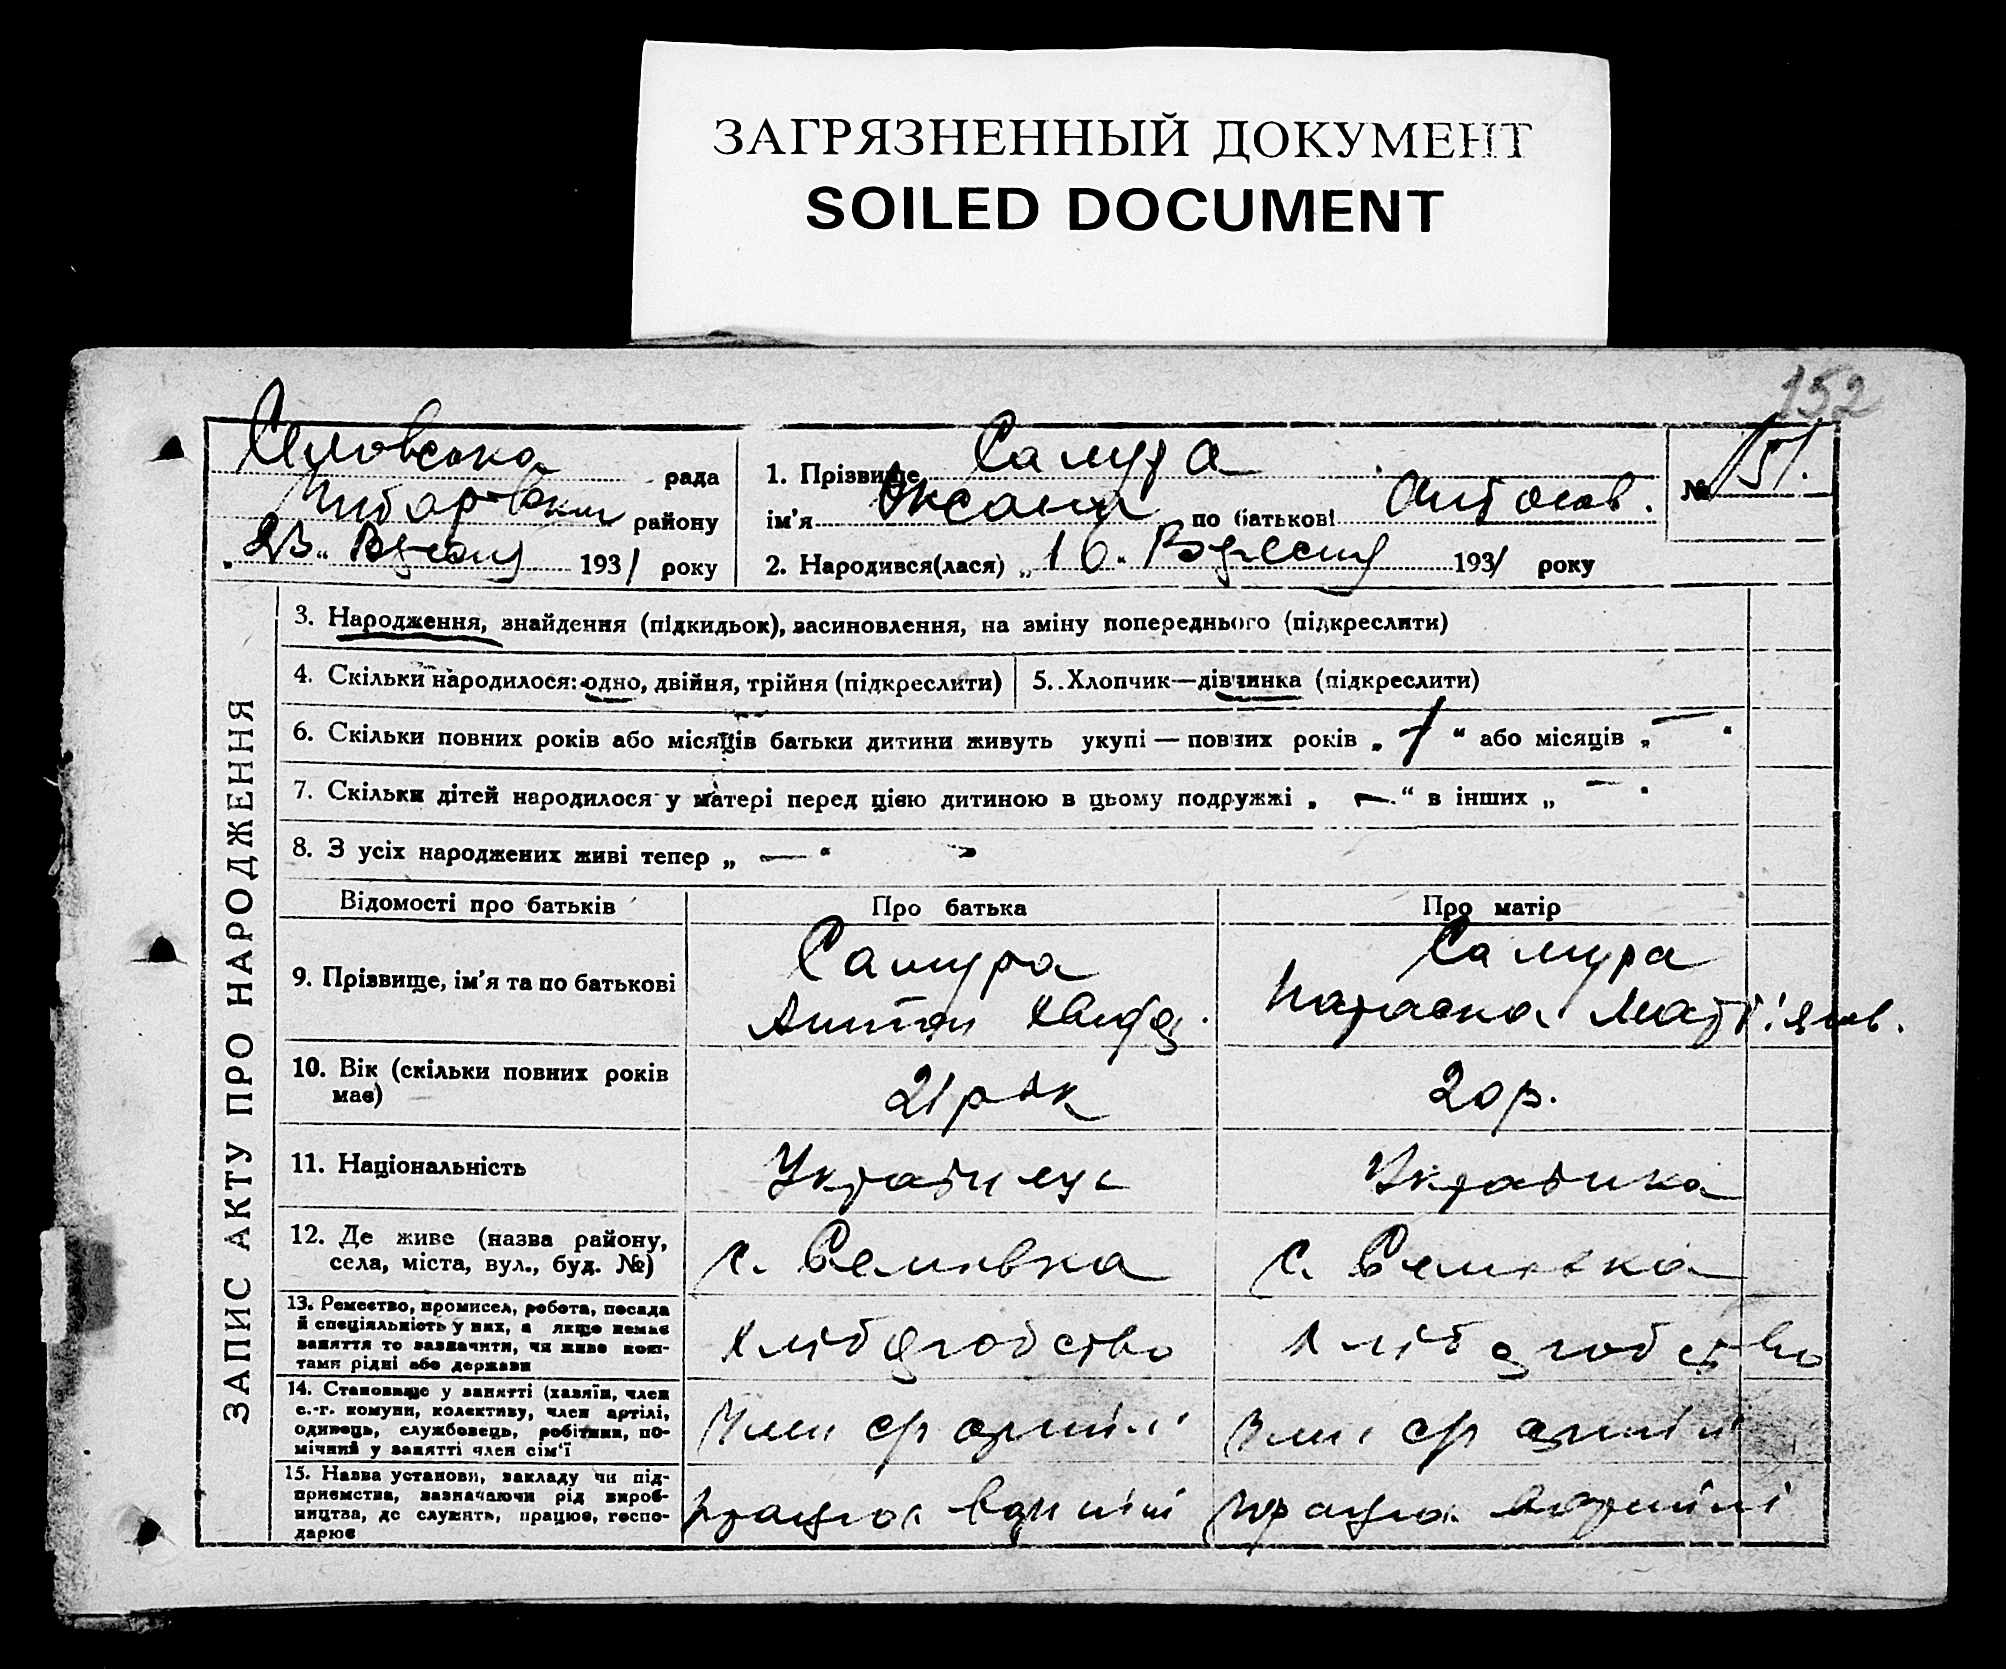 ЗАГРЯЗНЕННЫЙ ДОКУМЕНТ
SOILED DOCUMENT
152
рада
району
23 Вересня 1931 року
1. Прізвище Самура
ім'я Оксана по батькові Антонов.
№ 151.
2. Народився(лася) „16" Вересня 1931 року
ЗАПИС АКТУ ПРО НАРОДЖЕННЯ
3. Народження, знайдення (підкидьок), засиновлення, на зміну попереднього (підкреслити)
4. Скільки народилося: одно, двійня, трійня (підкреслити)
5. Хлопчик—дівчинка (підкреслити)
6. Скільки повних років або місяців батьки дитини живуть укупі — повних років „ 1 " або місяців „ — "
7. Скільки дітей народилося у матері перед цією дитиною в цьому подружжі „ — " в інших „ — "
8. З усіх народжених живі тепер „ — "
Відомості про батьків Про батька Про матір
9. Прізвище, ім'я та по батькові
Самура
Антон
Самура
Параска
10. Вік (скільки повних років має)
21 рік
20 р.
11. Національність
Українець
Українка
12. Де живе (назва району, села, міста, вул., буд. №)
с. Семовка
с. Семовка
13. Ремество, промисел, робота, посада й спеціяльність у них, а якщо немає заняття то зазначити, чи живе коштами рідні або держави
Хліборобство
Хліборобство
14. Становище у занятті (хазяїн, член с.-г. комуни, колективу, член артілі, одинець, службовець, робітник, помічний у занятті член сім'ї
Член с/г артілі
Член с/г артілі
15. Назва установи, закладу чи підприємства, зазначаючи рід виробництва, де служить, працює, господарює
працює в артілі
працює в артілі